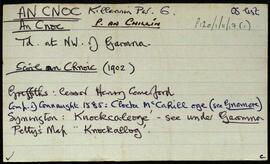 AN CNOC Killeann Par. G. OS list
An Cnoc P. AN CHILLÍN P120/1/1/7(1)
Td. at NW. of Garomna
Scoil an Chnoic (1902)
Griffiths: Lessor Henry Comerford
Comp. of Connaught 1585: Cloctra McCahill oge (see Gnomore)
Symington: Knockcalleoge - see under Garomna
Petty's Map "Knockallog"